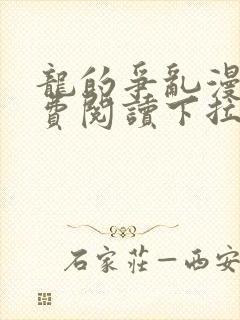 龍的爭亂漫
費閱讀下拉
石家莊—西安